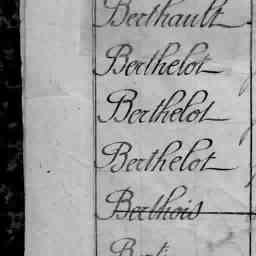 Berthault
Berthelot
Berthelot
Berthelot
Berthois